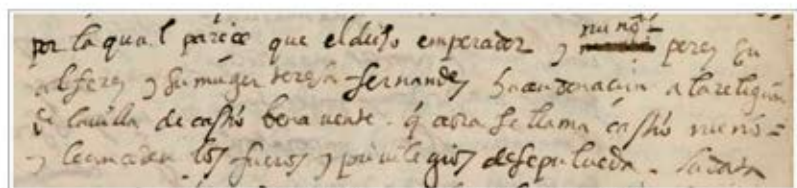 por la qual pareçe que el dicho emperador y nuño perez su
alferez y su muger teresa fernandez hacen donacion a la religion
de la villa de castro benavente. q̃ aora se llama castro nuño =
y le conceden los fueros y privilegios de sepulveda. la data